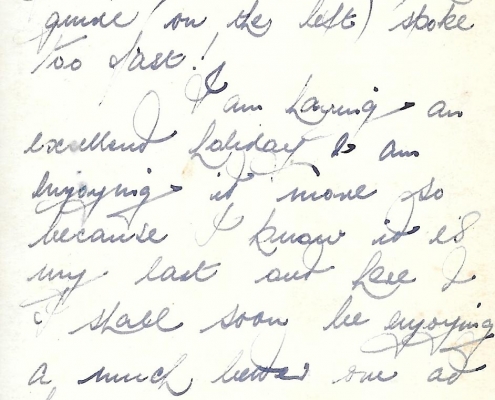 guide (on the left) spoke
too fast!
I am having an
excellent holiday & am
enjoying it more so
because I know it is
my last out here &
I shall soon be enjoying
a much better one at